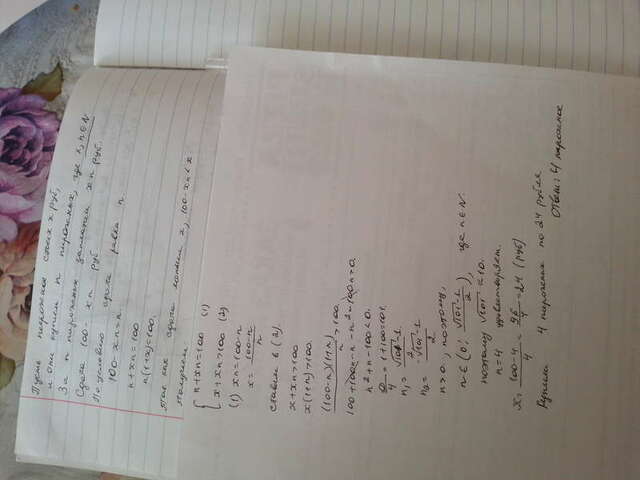 Пусть пирожное стоит x руб,
и они купили n пирожных, где x, n∈N
За n пирожных заплатили xn руб.
Сдача 100 - xn руб
По условию сдача равна n.
100 - xn = n.
n + xn = 100
n(1+x) = 100.
так как сдача меньше x, 100 - xn < x
получаем:
{ n + xn = 100 (1)
x + xn > 100 (2)
(1) xn = 100 - n
x = (100-n)/n
ставим в (2)
x + xn > 100
x(1+n) > 100.
(100-n)(1+n)/n > 100
100 + 100n - n - n² - 100n > 0
n² + n - 100 < 0.
D = 1 + 400 = 401.
n > 0, поэтому,
n ∈ (0; (√401 - 1)/2), где n∈N.
поэтому
n = 4 удовлетворяет.
x = (100-4)/4 = 96/4 = 24 (руб)
Купили 4 пирожных по 24 рубля
Ответ: 4 пирожное